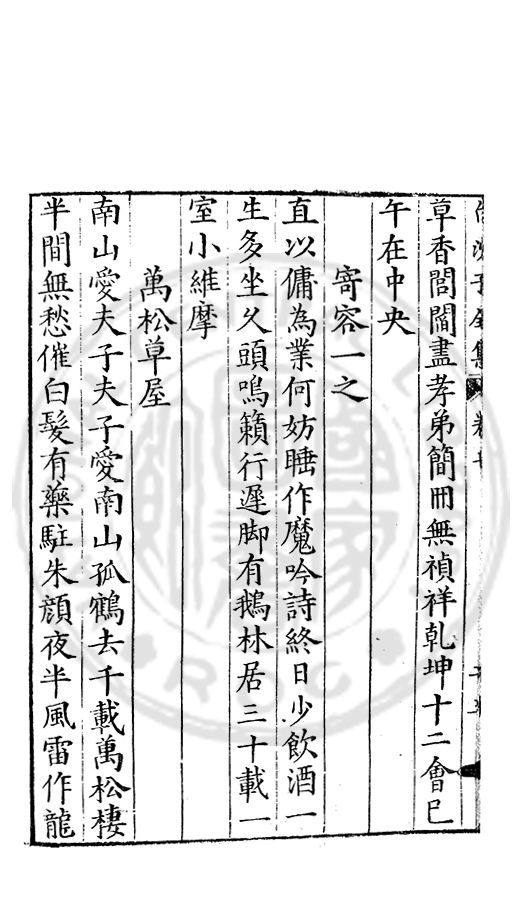 草香閭閻盡孝弟簡冊無禎祥乾坤十二會巳
午在中央
寄容一之
直以傭為業何妨睡作魔吟詩終日少飲酒一
生多坐久頭鳴籟行遲脚有鵝林居三十載一
室小維摩
萬松草屋
南山愛夫子夫子愛南山孤鶴去千載萬松棲
半間無愁催白髮有藥駐朱顔夜半風雷作龍